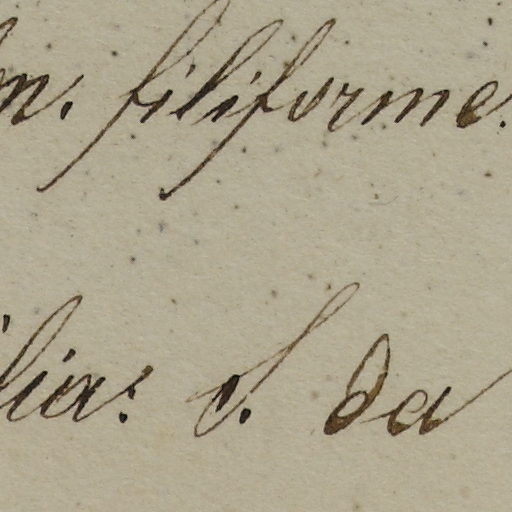 m. filiforme.
lia: S. da